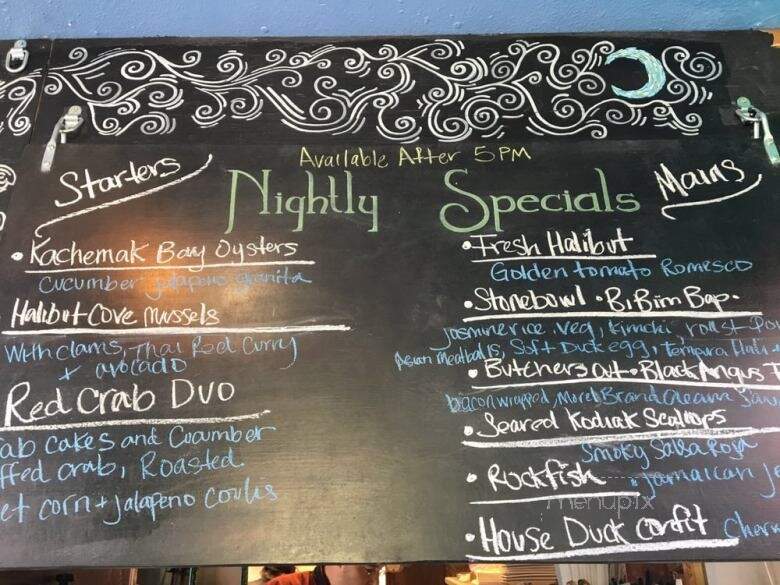 Available After 5 PM
Nightly Specials
Starters
• Kachemak Bay Oysters
cucumber jalapeno granita
Halibut Cove Mussels
With clams, Thai Red Curry
+ avocado
Red Crab Duo
ab cakes and Cucumber
ffed crab, Roasted
et corn + jalapeno coulis
Mains
• Fresh Halibut
Golden tomato Romesco
• Stonebowl • BiBim Bap •
jasmine rice, veg, kimchi, roast
Asian meatballs, Soft Duck egg, tempura
• Butchers cut • Black Angus
bacon wrapped, Morel Brand Cream
• Seared Kodiak Scallops
Smoky Salsa Roja
• Rockfish • Jamaican
• House Duck confit
menupix